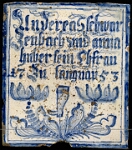 Andereas Schwar
Zenbach und anna
huber sein Ehfrau
17 Zu Langnau 53